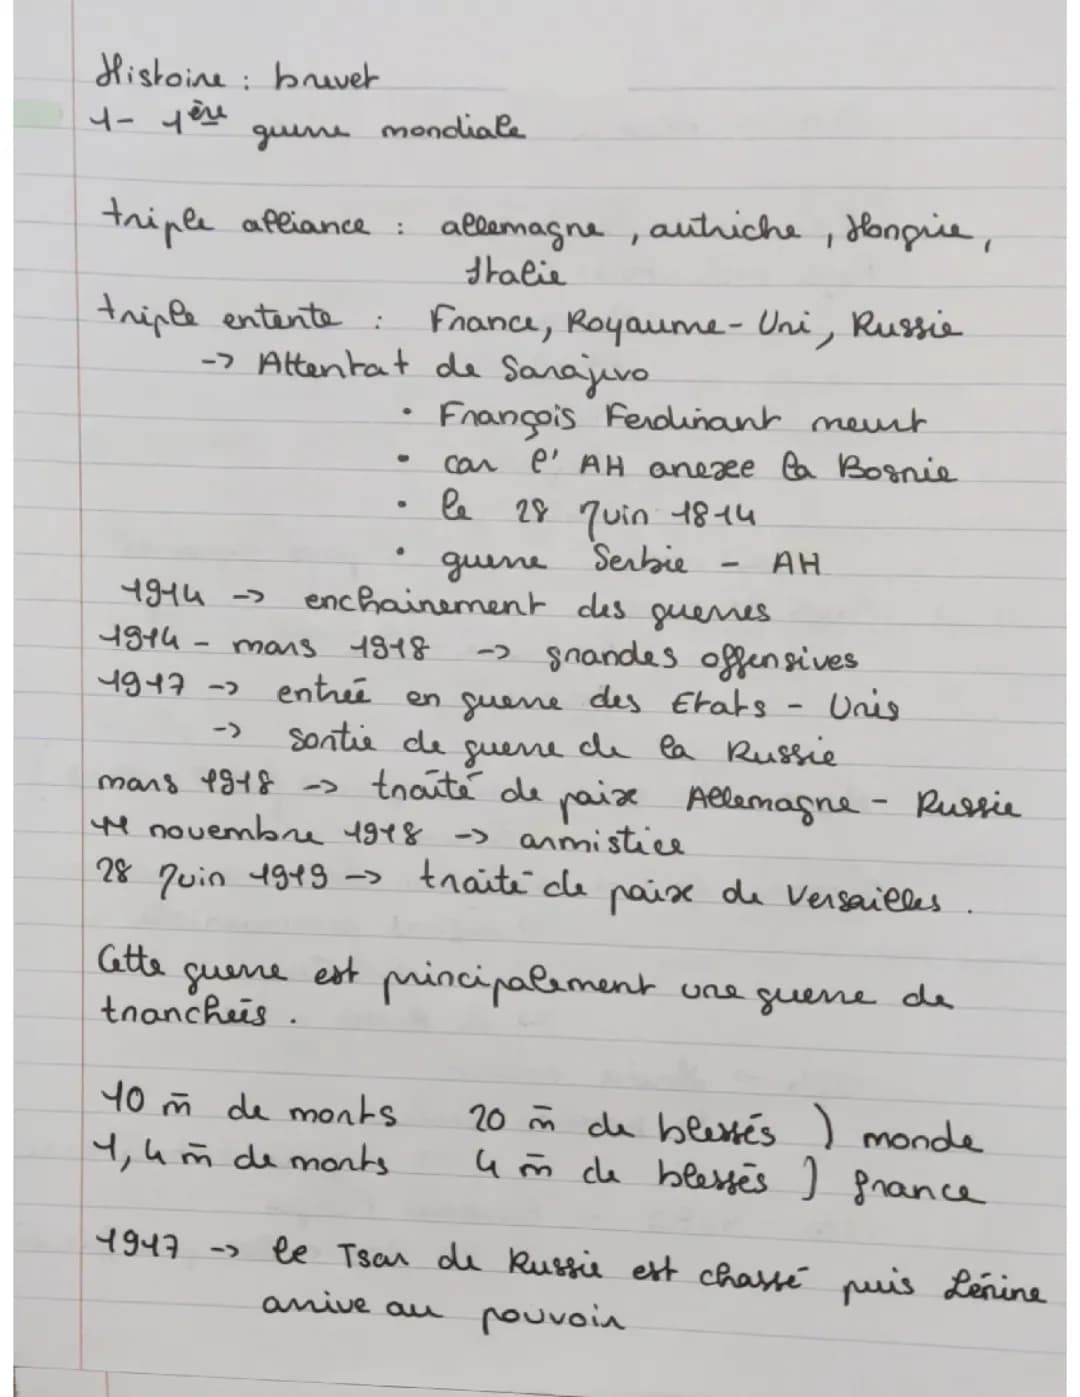 Histoire : brevet
1- 1ère guerre mondiale
triple alliance : allemagne, autriche, Hongrie,
Italie
triple entente : France, Royaume-Uni, Russie
-> Attentat de Sarajevo
• François Ferdinant meurt
• car l'AH anexee la Bosnie
• le 28 Juin 1814
• guerre Serbie - AH
1914 -> enchainement des guerres
1914 - mars 1918 -> grandes offensives
1917 -> entrée en guerre des Etats - Unis
-> sortie de guerre de la Russie
mars 1918 -> traité de paix Allemagne - Russie
11 novembre 1918 -> armistice
28 Juin 1919 -> traité de paix de Versailles.
Cette guerre est principalement une guerre de
tranchées.
10 m̄ de morts 20 m̄ de blessés ) monde
1,4 m̄ de morts 4 m̄ de blessés ) france
1917 -> le Tsar de Russie est chassé puis Lénine
arrive au pouvoir